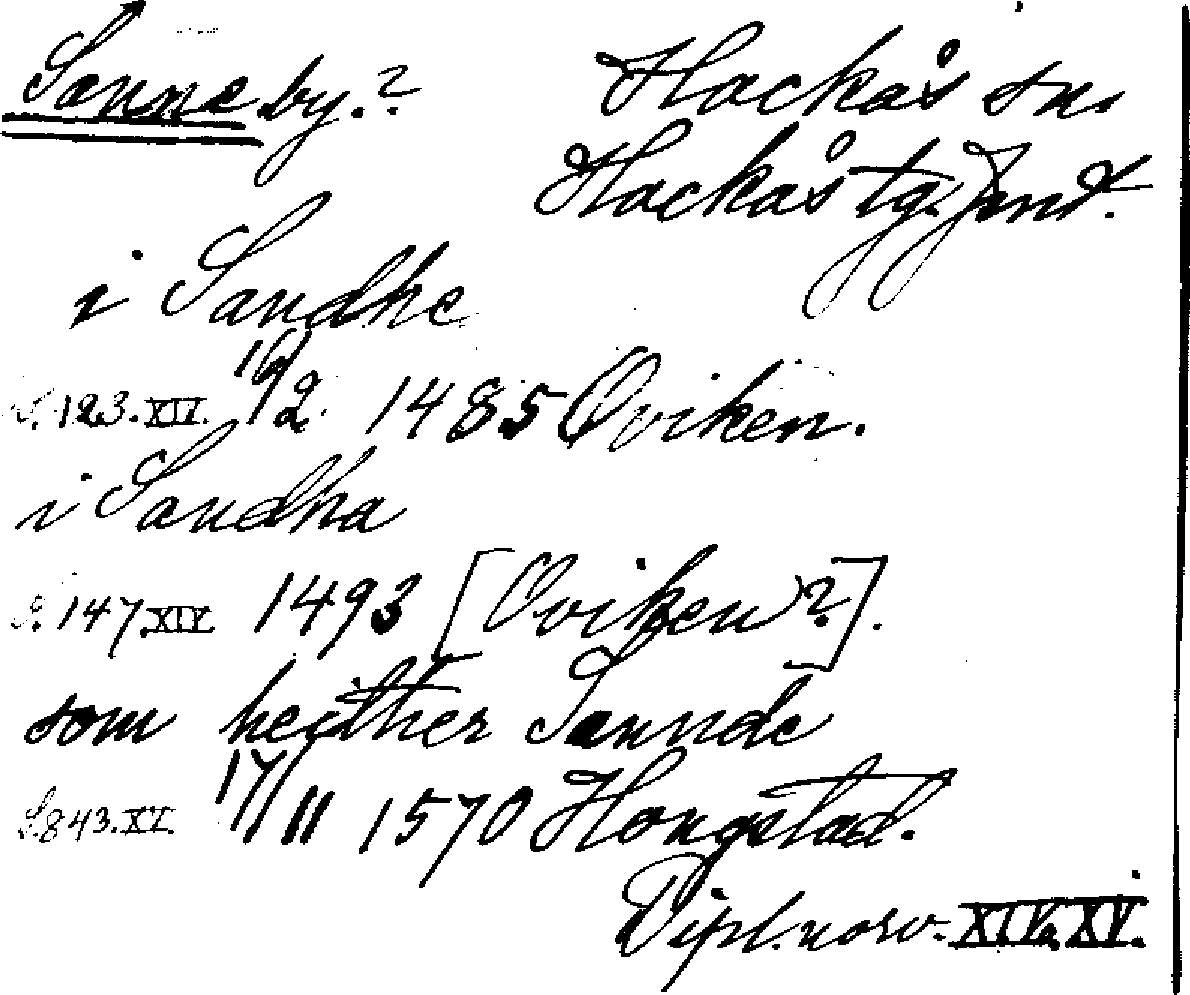 Sanne by.? Hackås sn.
Hackås tg. Jmt.
i Sandhe
S. 123. XIV. 16/2 1485 Oviken.
i Sandha
S. 147. XIV 1493 [Oviken?].
som heither Sannde
S. 843. XV. 17/11 1570 Hongstad.
Dipl. norv. XIV, XV.